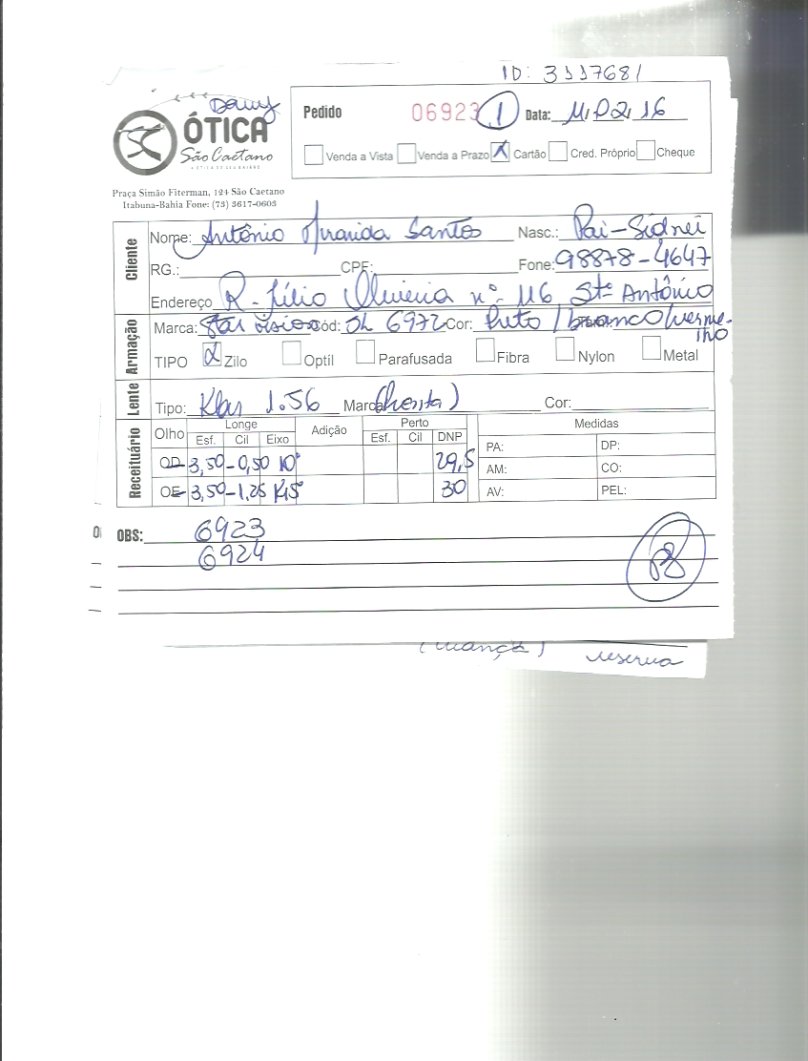 ID: 3117681
Damy
ÓTICA
São Caetano
Pedido 06923 1 Data: 11, 02, 16
Venda a Vista Venda a Prazo X Cartão Cred. Próprio Cheque
Praça Simão Fiterman, 124 São Caetano
Itabuna-Bahia Fone: (73) 3617-0603
Cliente
Nome: Antônio Santos Nasc.: Pai-Sidnei
RG.: CPF: Fone: 98878-4647
Endereço R. Júlio Oliveira nº 116, Stº Antônio
Armação
Marca: Star vision Cód: 6972 Cor: Preto / branco / vermelho
TIPO X Zilo Optil Parafusada Fibra Nylon Metal
Lente
Tipo: Klar 1.56 Marca: Cor:
Receituário
Olho Longe Adição Perto Medidas
Esf. Cil Eixo Esf. Cil DNP
OD - 3,50 -0,50 10° 29,5 PA: DP:
AM: CO:
OE - 3,50 -1,25 30 AV: PEL:
OBS: 6923
6924
(criança) reserva